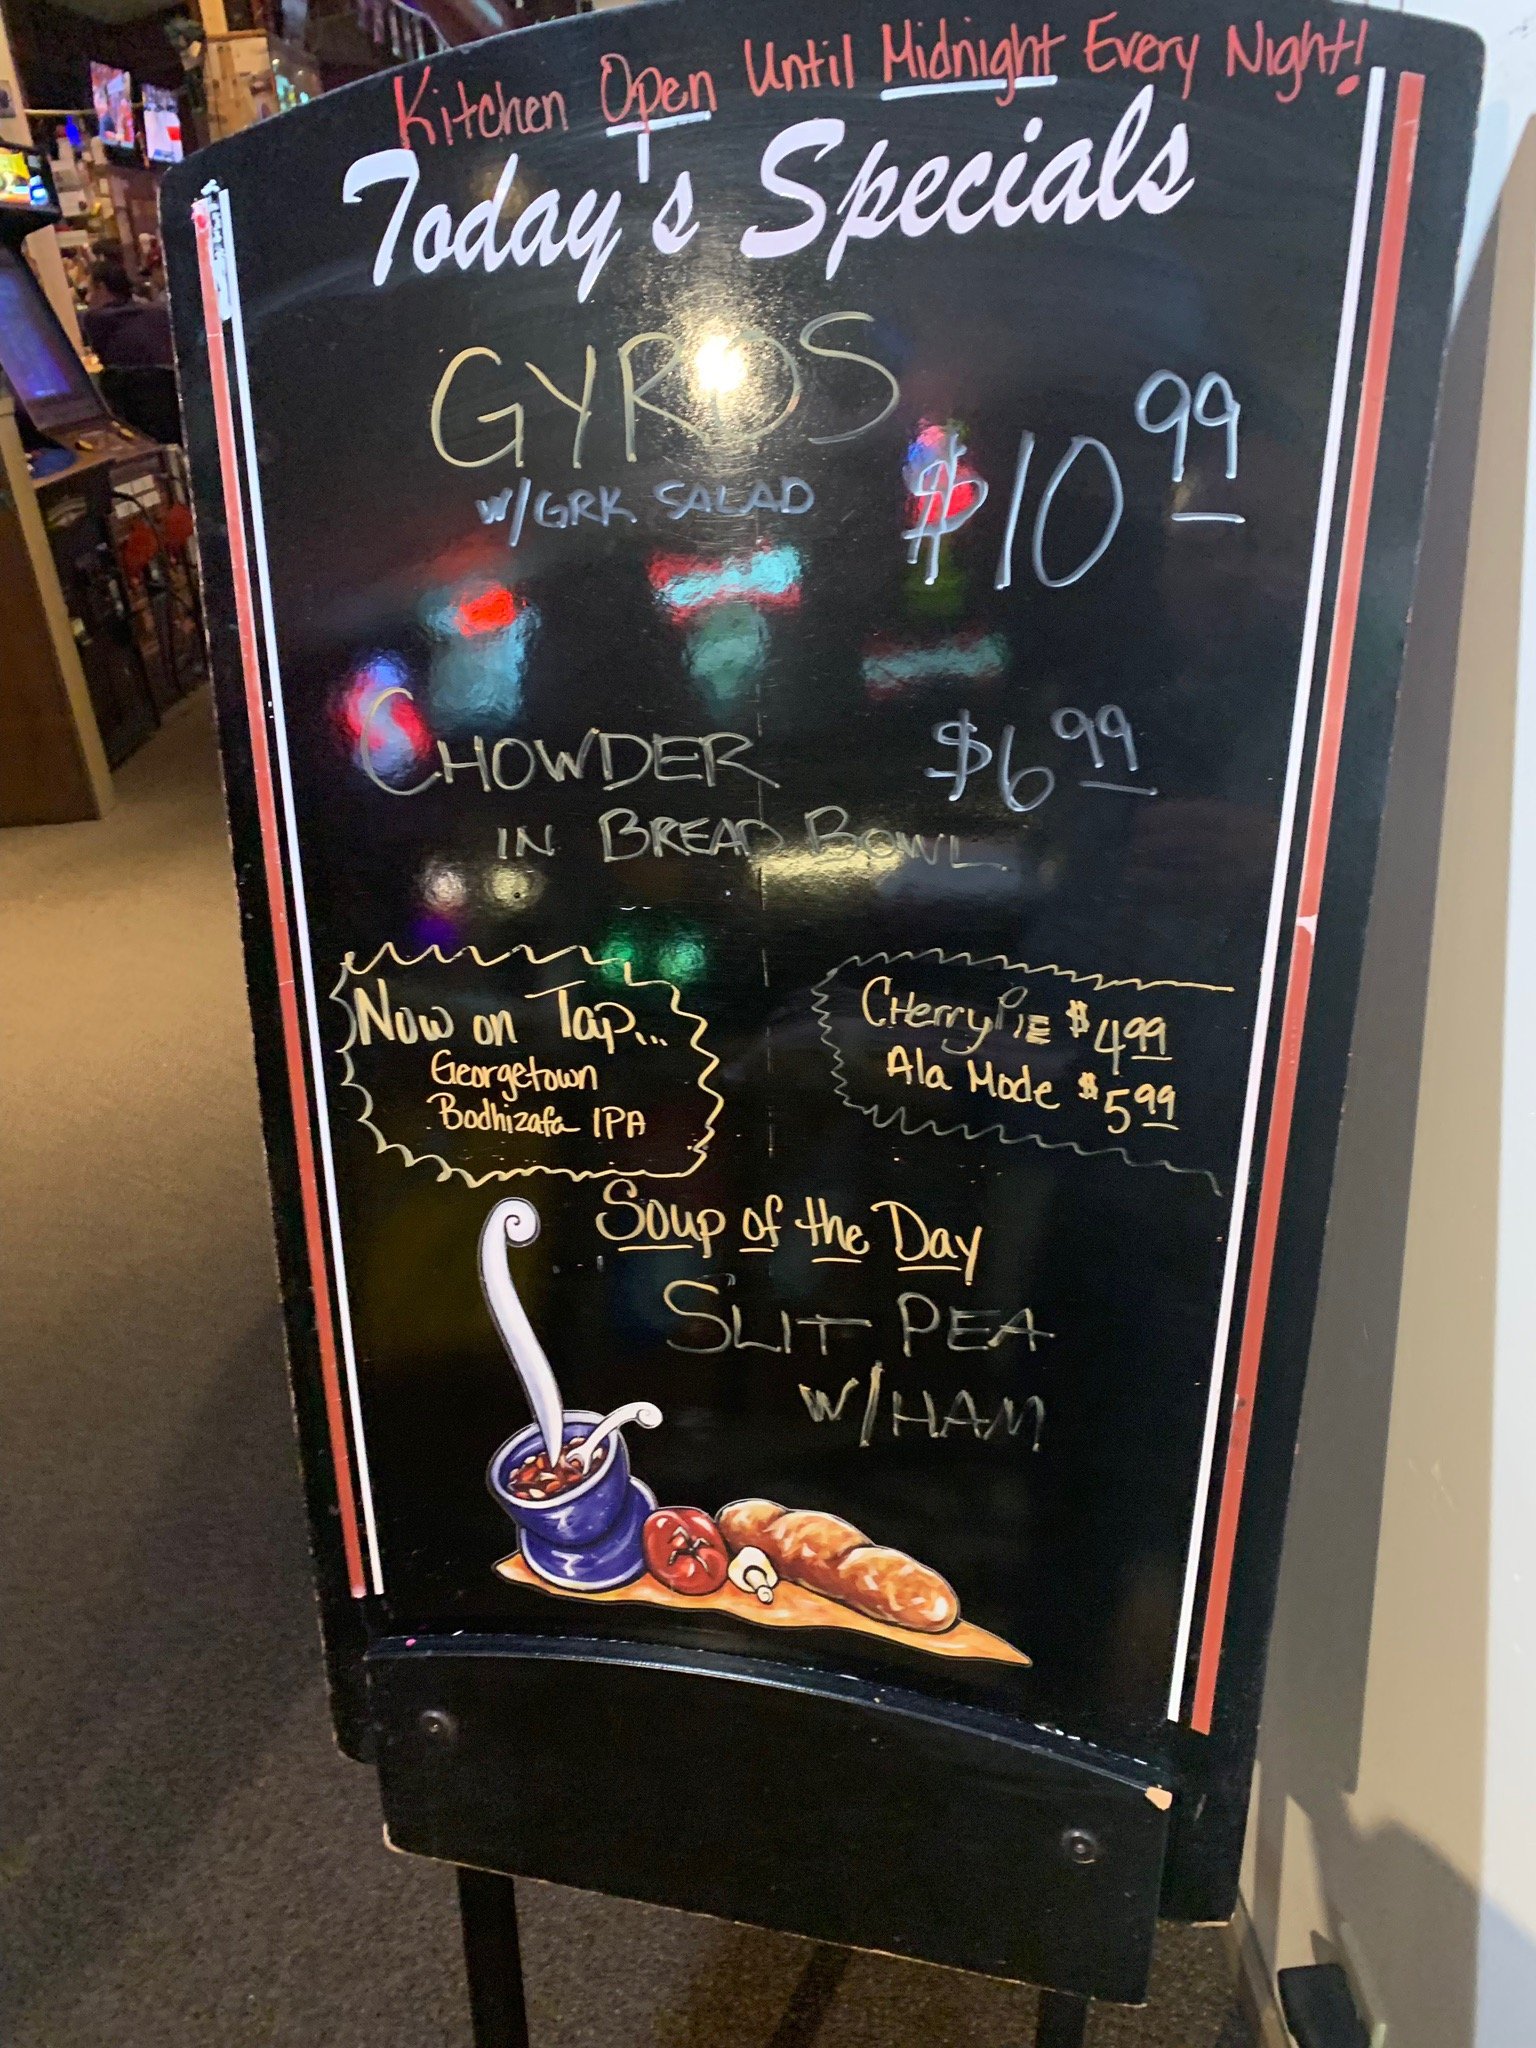 Kitchen Open Until Midnight Every Night!
Today's Specials
GYROS
w/GRK SALAD
$10.99
CHOWDER $6.99
IN BREAD BOWL
Now on Tap...
Georgetown
Bodhizafa IPA
Cherry Pie $4.99
Ala Mode $5.99
Soup of the Day
SLIT PEA
w/HAM